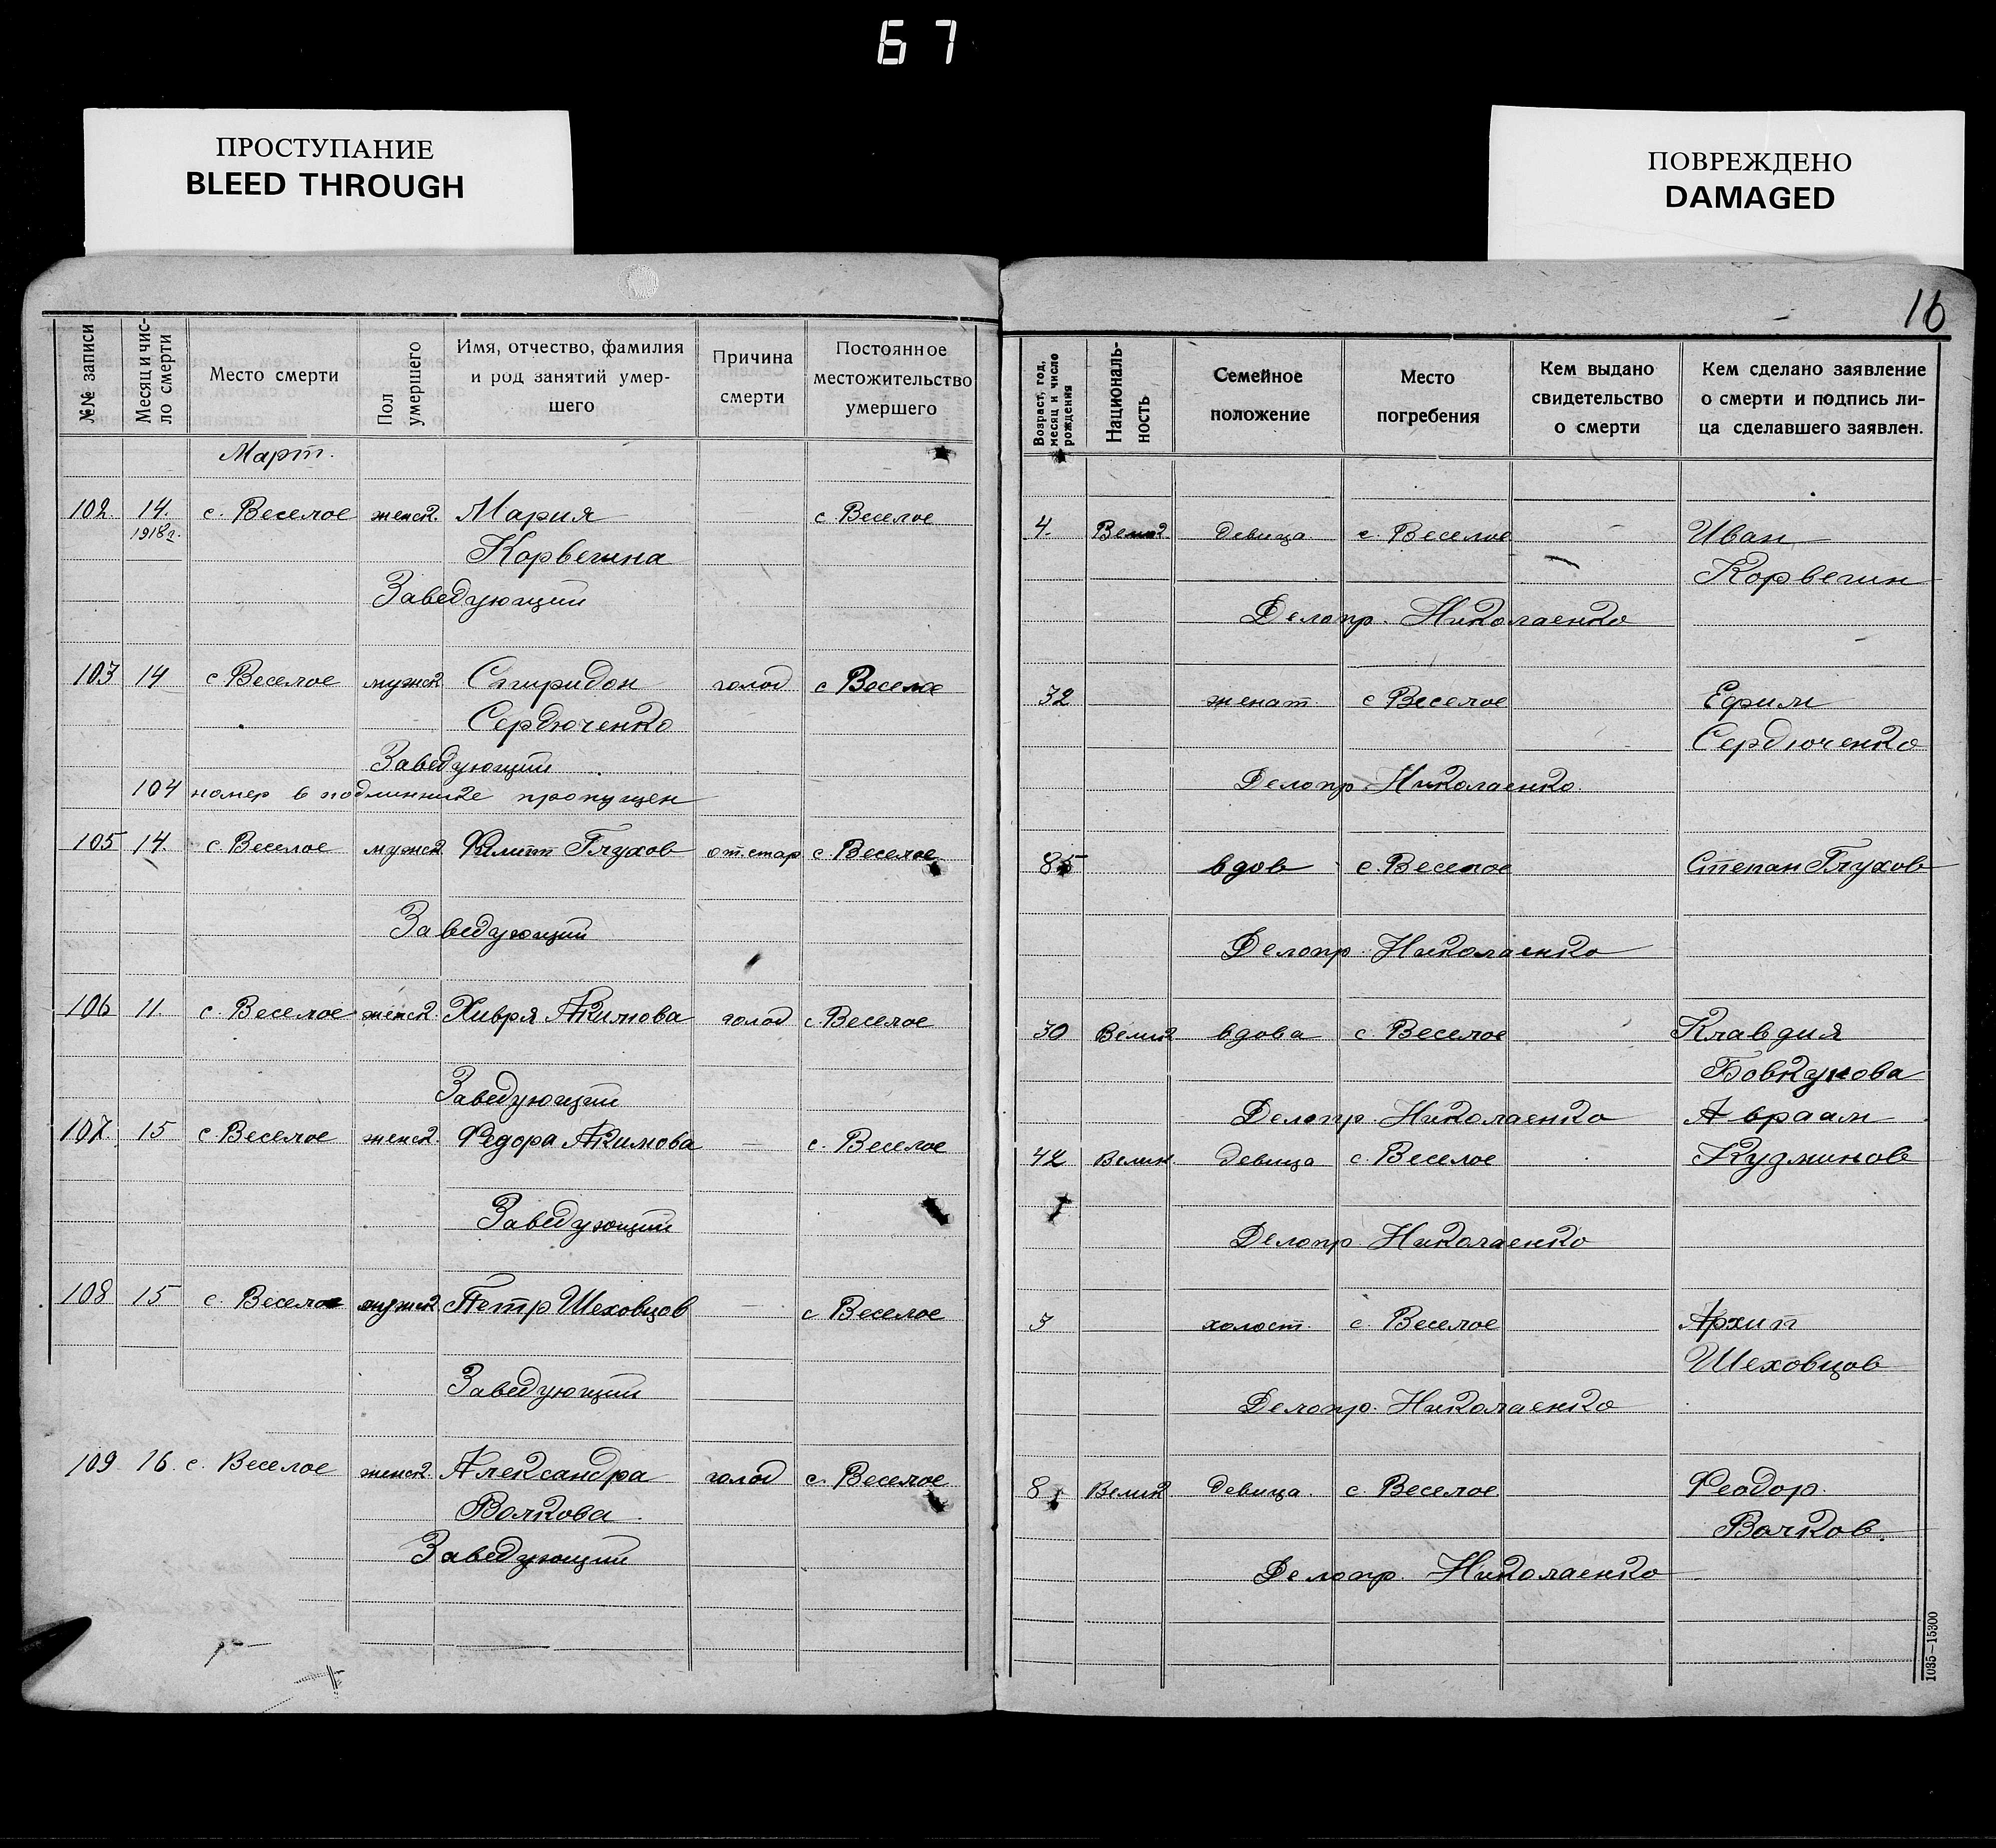 67
ПРОСТУПАНИЕ
BLEED THROUGH
ПОВРЕЖДЕНО
DAMAGED
16
№№ записи
Месяц и чис-
ло смерти
Место смерти
Пол
умершего
Имя, отчество, фамилия
и род занятий умер-
шего
Причина
смерти
Постоянное
местожительство
умершего
Март.
102. 14. с. Веселое женск. Мария с Веселое
1918 г.
Корвегина
Заведующий
103 14 с Веселое мужск Спиридон голод с Веселое
Сердюченко
Заведующий
104 номер в подлиннике пропущен
105 14. с Веселое мужск Филипп Глухов от стар с Веселое
Заведующий
106 11. с. Веселое женск. Хивря Акимова голод с Веселое
Заведующий
107. 15 с Веселое женск. Федора Акимова — с. Веселое
Заведующий
108 15 с. Веселое мужск. Петр Шеховцов — с Веселое
Заведующий
109 16. с. Веселое женск. Александра голод с. Веселое
Волкова
Заведующий
Возраст, год,
месяц и число
рождения
Националь-
ность
Семейное
положение
Место
погребения
Кем выдано
свидетельство
о смерти
Кем сделано заявление
о смерти и подпись ли-
ца сделавшего заявлен.
4. Велик девица с Веселое Иван
Корвегин
Делопр. Николаенко
32 женат. с Веселое Ефим
Сердюченко
Делопр. Николаенко
85 вдов с. Веселое Степан Глухов
Делопр. Николаенко
30 Велик вдова с Веселое Клавдия
Бовкунова
Делопр. Николаенко Авраам
42 Велик. девица с. Веселое Кудминов
Делопр. Николаенко
3 холост. с. Веселое Архип
Шеховцов
Делопр. Николаенко
8 Велик девица. с. Веселое Феодор.
Волков.
Делопр. Николаенко
1035—15300